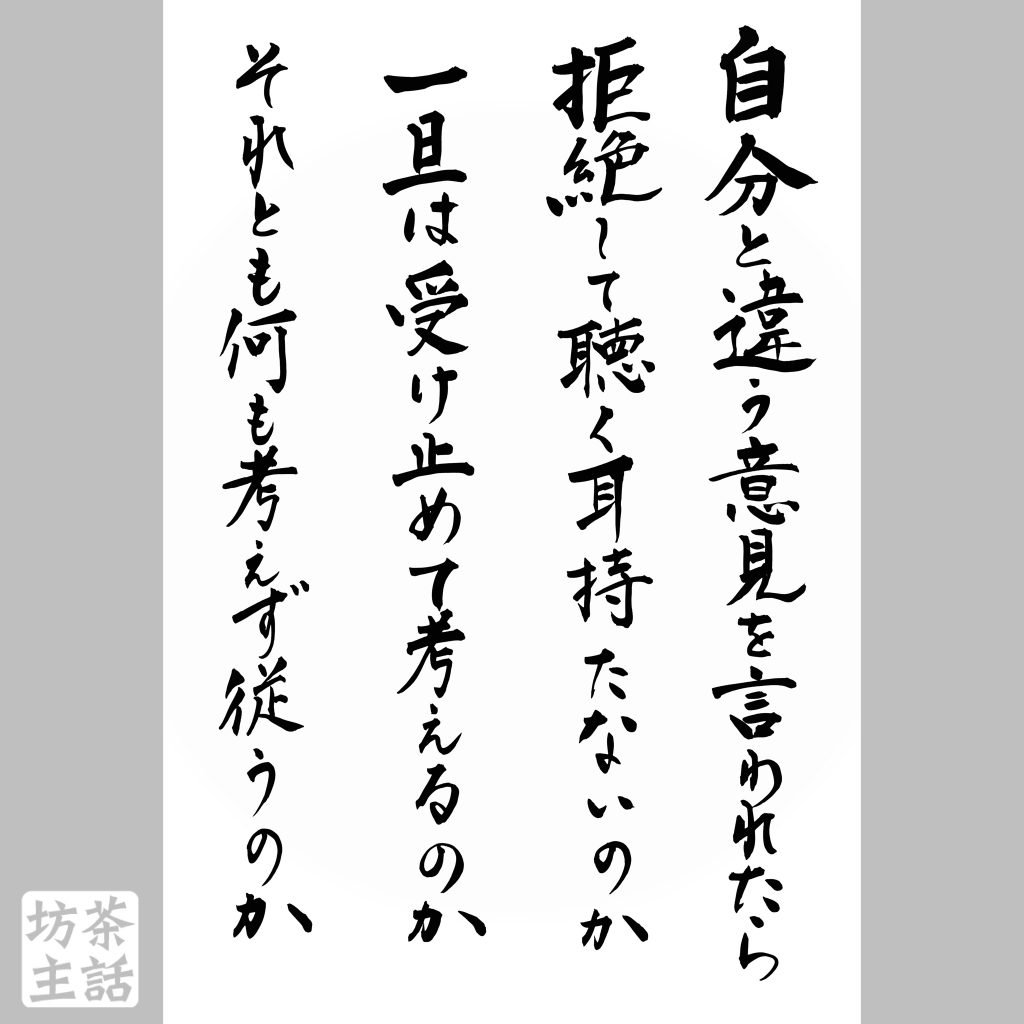 自分と違う意見を言われたら
拒絶して聴く耳持たないのか
一旦は受け止めて考えるのか
それとも何も考えず従うのか
茶話
坊主